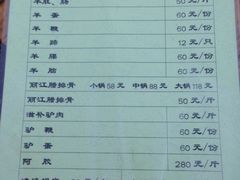 羊肚、肠 50元/斤
羊蛋 60元/份
羊鞭 60元/份
羊蹄 12元/只
羊腰 60元/份
羊脑 60元/份
丽江腊排骨 小锅58元 中锅88元 大锅118元
丽江腊排骨 50元/斤
滋补驴肉 60元/斤
驴鞭 60元/份
驴蛋 60元/份
阿胶 280元/斤